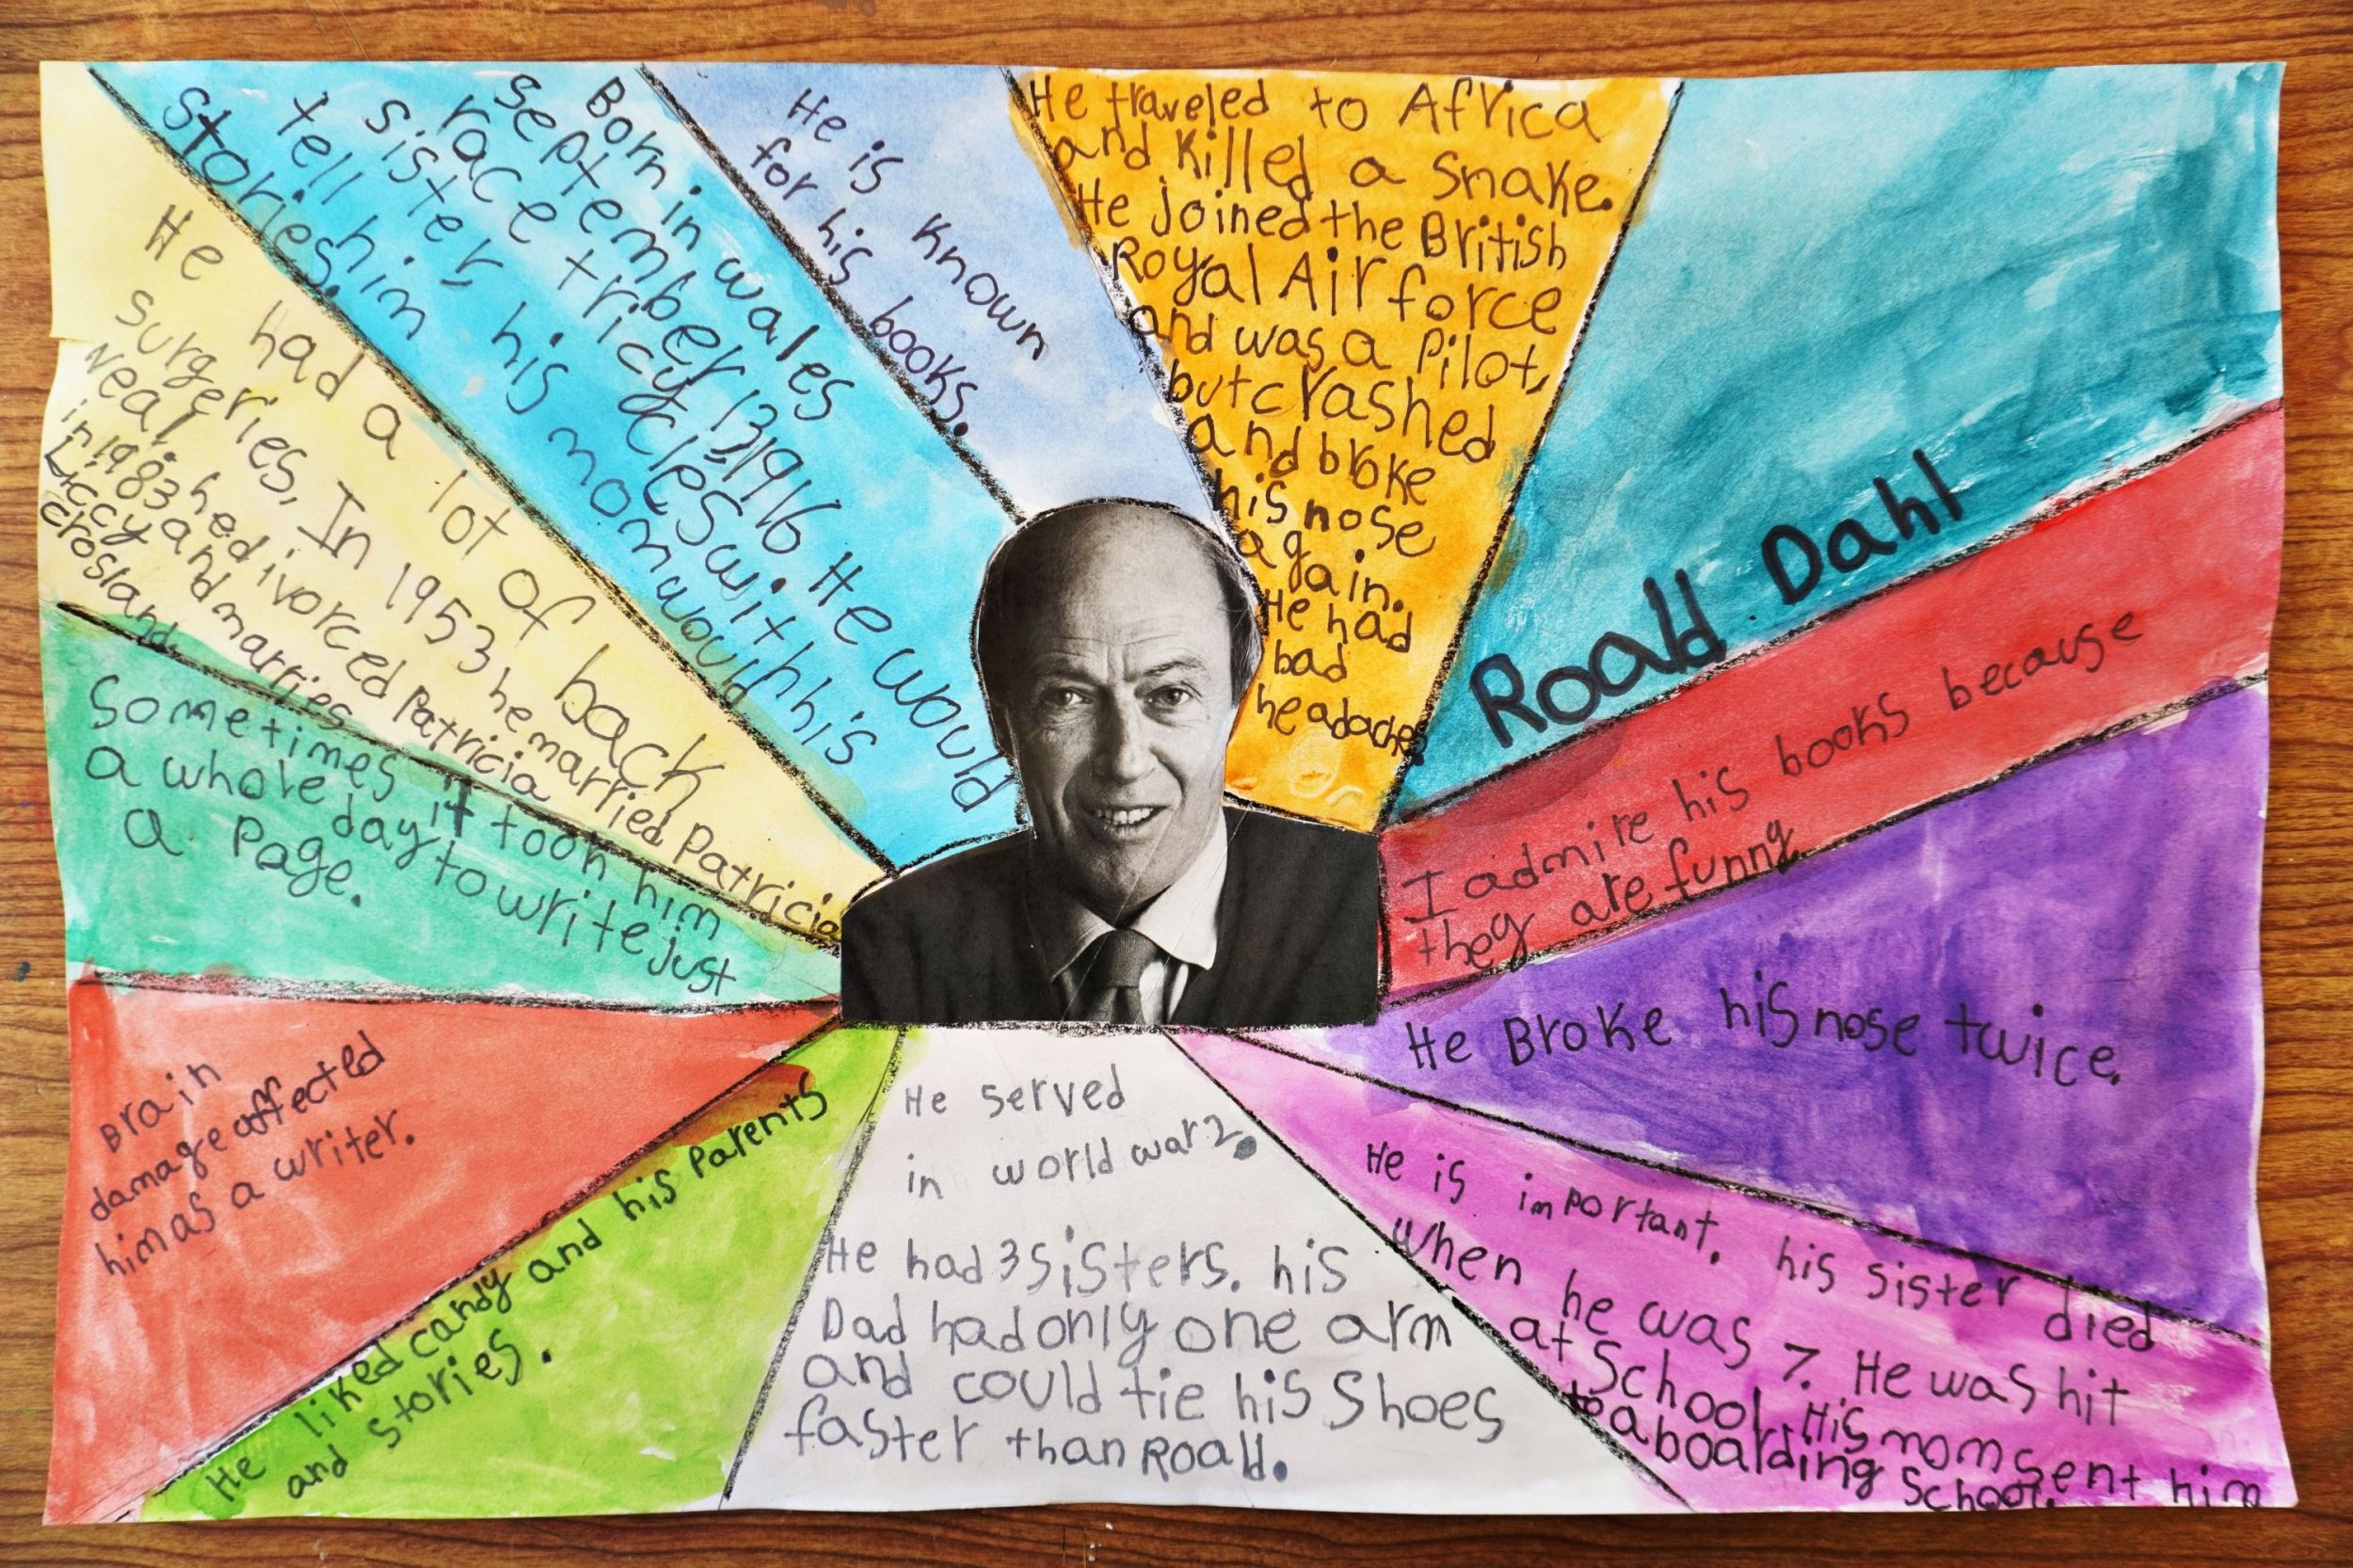 He had a lot of back
surgeries, In 1953 he married Patricia
Neal. he divorced Patricia
in 1983 and marries
Liccy
croslland.
Born in wales
september 13, 1916 He would
race tricycles with his
sister, his mom would
tell him
stories.
He is known
for his books.
He traveled to Africa
and killed a snake.
He joined the British
Royal Air force
and was a Pilot,
but crashed
and broke
his nose
again.
He had
bad
headaches.
Roald Dahl
I admire his books because
they are funny
He Broke his nose twice.
He is important. his sister died
when he was 7. He was hit
at School. His mom sent him
to a boarding School.
He served
in world war 2.
He had 3 sisters. his
Dad had only one arm
and could tie his Shoes
faster than Roald.
He liked candy and his Parents
and stories.
Brain
damage affected
him as a writer.
Sometimes it took him
a whole day to write just
a Page.